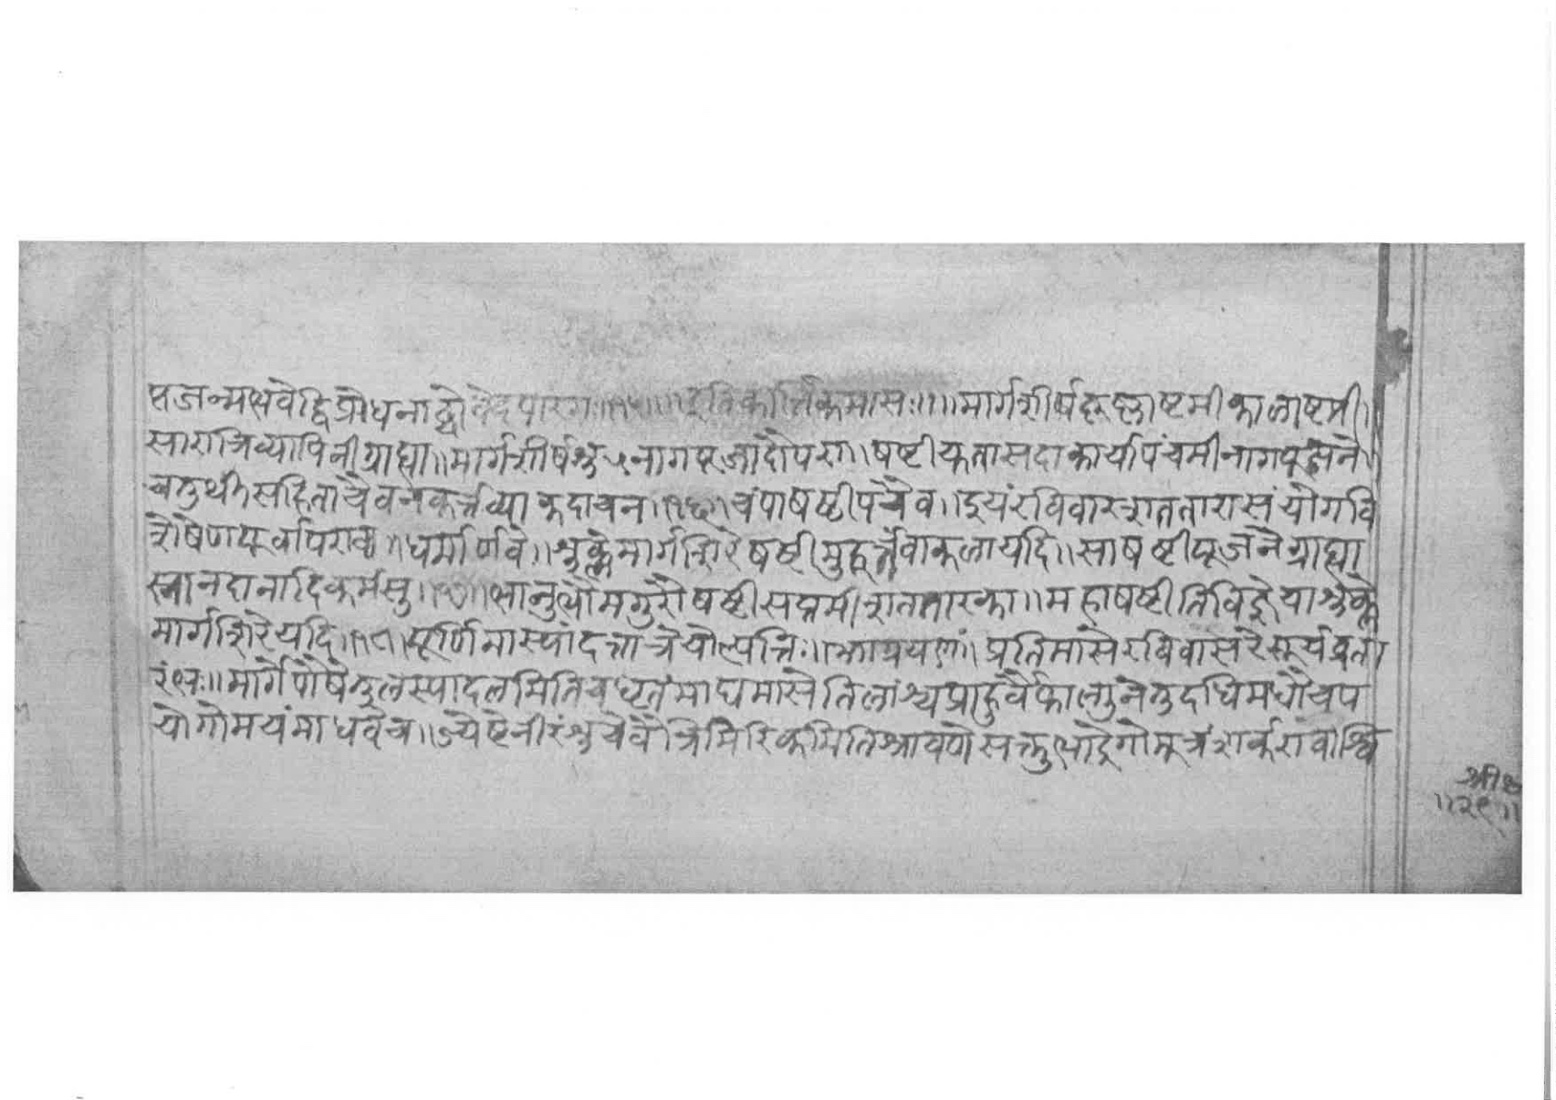 प्तजन्मभवेद्विप्रोधनाढ्योवेदपारगः॥१५॥॥इतिकार्तिकमासः॥॥॥मार्गशीर्षकृष्णाष्टमीकालाष्टमी॥
सारात्रिव्यापिनीग्राह्या॥मार्गशीर्षशु५नागपूजादौपरा॥षष्टीयुतासदाकार्यापंचमीनागपूजने॥
चतुर्थीसहिताचैवनकर्त्तव्याकदाचन॥१६॥चंपाषष्टीपचैव॥इयंरविवारशततारासंयोगवि
शेषेणपूर्वापरावा॥धर्मार्णवे॥शुक्लेमार्गशिरेषष्टीमुहूर्त्तंवाकलायदि॥साषष्टीपूजनेग्राह्या
स्नानदानादिकर्मसु॥१७॥भानुभौमगुरौषष्टीसप्तमीशततारका॥महाषष्टीतिविज्ञेयाशुक्ले
मार्गशिरेयदि॥१८॥पूर्णिमास्यांदत्तात्रेयोत्पत्तिः॥ प्रतिमासेरविवासरेसूर्यव्रता
मार्गेपौषेतुलस्यादलमितिचघृतंमाघमासेतिलांश्चप्राहुर्वैफाल्गुनेतुदधिमधौचप
योगोमयंमाधवेच॥ज्येष्टेनीरंशुचेवैत्रिमरिकमितिश्रावणेसक्तुभाद्रेगोमूत्रंशर्करावाश्वि
॥२९॥